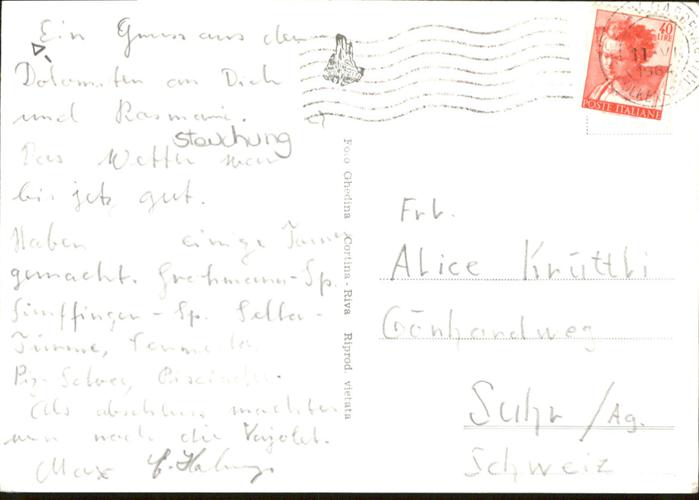 Ein Gruss aus den
Dolomiten an Dich
und Rosmarie.
stauchung
Das Wetter war
bis jetz gut.
Haben einige Touren
gemacht. Grohmann-Sp.
Fünffinger-Sp. Sella-
Türme,
Piz-
Als abschluss machten
wir noch die Vajolet.
Max
Foto Ghedina Cortina - Riva Riprod. vietata
40
LIRE
POSTE ITALIANE
11
Frl.
Alice Krüttli
Gönhardweg
Suhr/Ag.
Schweiz